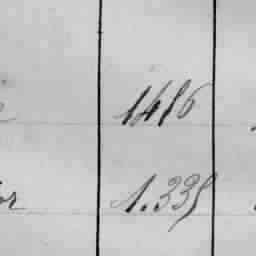 1416
or 1.335